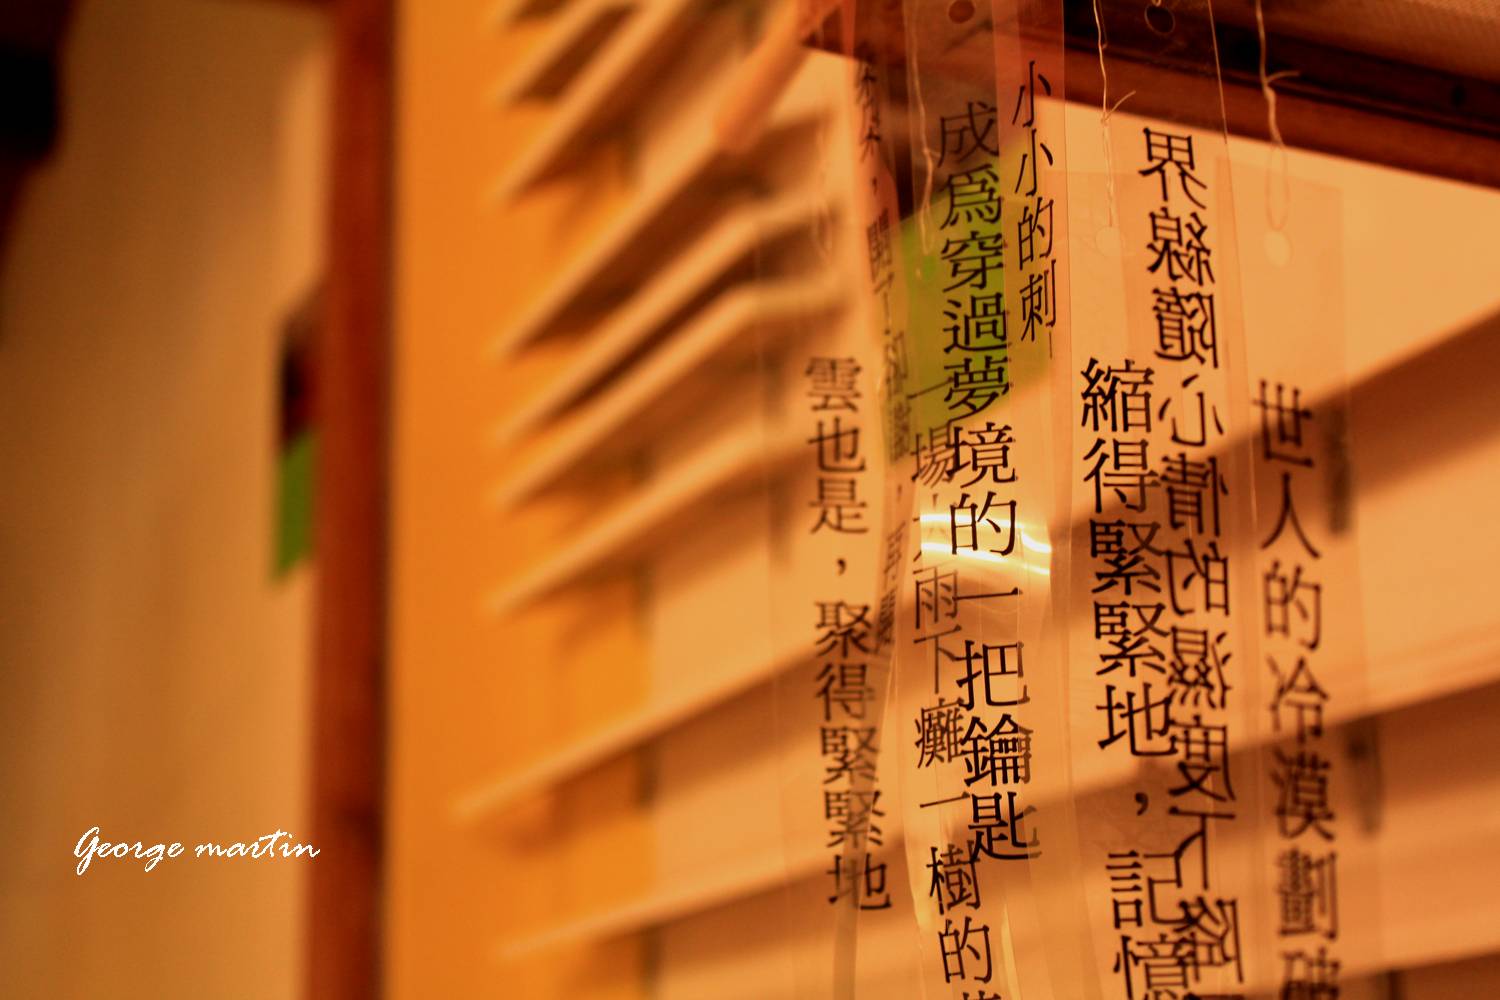 世人的冷漠劃破
界線隨心情的濕度下降
縮得緊緊地，記憶
小小的刺
成為穿過夢境的一把鑰匙
一場大雨下癱一樹的
雲也是，聚得緊緊地
George martin